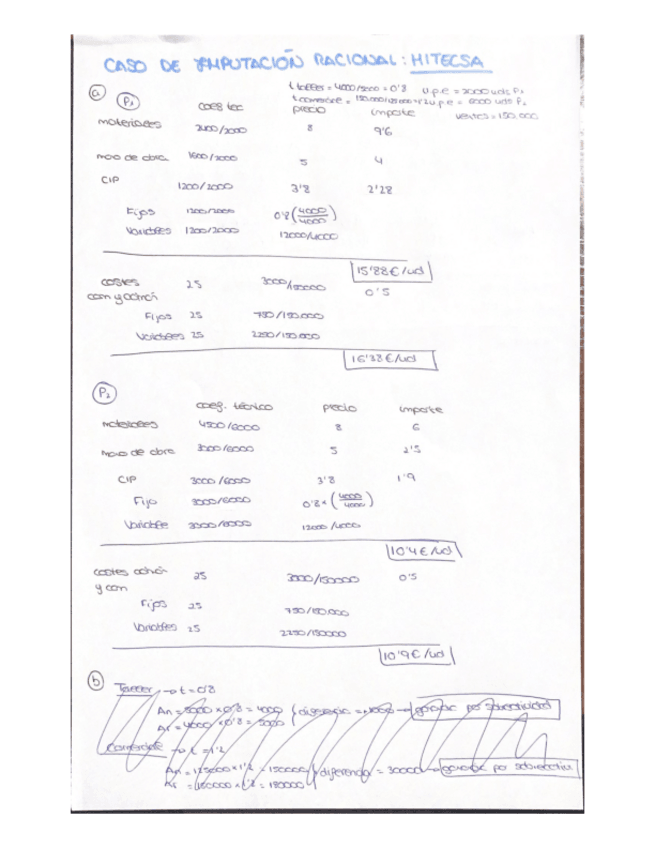 CASO DE IMPUTACIÓN RACIONAL: HITECSA
a P1
t taller = 4000/5000 = 0'8 u.p.e = 2000 uds P1
t comercial = 150.000/125.000 = 1'2 u.p.e = 6000 uds P2
coef tec precio importe ventas = 150.000
materiales 2400/2000 8 9'6
mano de obra 1600/2000 5 4
CIP 1200/2000 3'8 2'28
Fijos 1200/2000 0'8 (4000/4000)
Variables 1200/2000 12000/4000
15'88 €/ud
costes com y admón 25 3000/150000 0'5
Fijos 25 750/150.000
Variables 25 2250/150.000
16'38 €/ud
P2
coef. técnico precio importe
materiales 4500/6000 8 6
mano de obra 3000/6000 5 2'5
CIP 3000/6000 3'8 1'9
Fijo 3000/6000 0'8 × (4000/4000)
Variable 3000/6000 12000/4000
10'4 €/ud
costes admón y com 25 3000/150000 0'5
Fijos 25 750/150.000
Variables 25 2250/150000
10'9 €/ud
b
Taller → t = 0'8
An = 5000 × 0'8 = 4000 diferencia =
Ar = 4000 × 0'8 =
Comercial → t = 1'2
An = 125000 × 1'2 = 150000 diferencia = 30000 →
Ar = 150000 × 1'2 = 180000